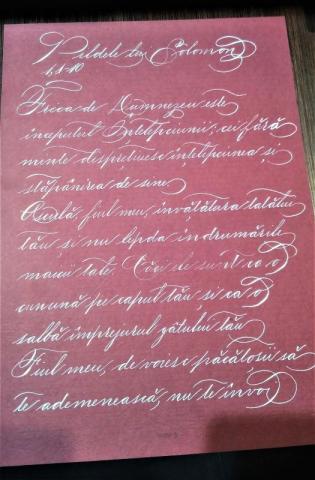 Pildele lui Solomon
1,1-10
Frica de Dumnezeu este
începutul Înțelepciunii; cei fără
minte disprețuiesc înțelepciunea și
stăpânirea de sine.
Ascultă, fiul meu, învățătura tatălui
tău și nu lepăda îndrumările
maicii tale. Căci ele sunt ca o
cunună pe capul tău și ca o
salbă împrejurul gâtului tău
Fiul meu, de voiesc păcătoșii să
te ademenească, nu te învoi